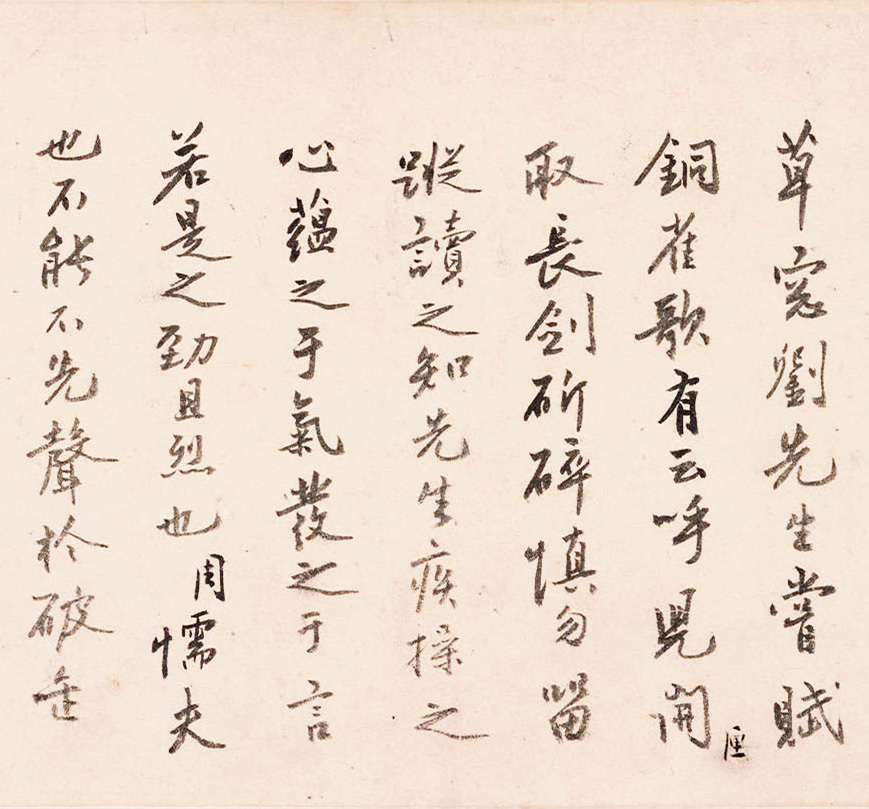 草窓劉先生嘗賦
銅雀歌有云呼兒開匣
取長劍斫碎慎勿留
蹤讀之知先生疾操之
心蘊之于氣發之于言
若是之勁且烈也周懦夫
也不能不先聲於破缶